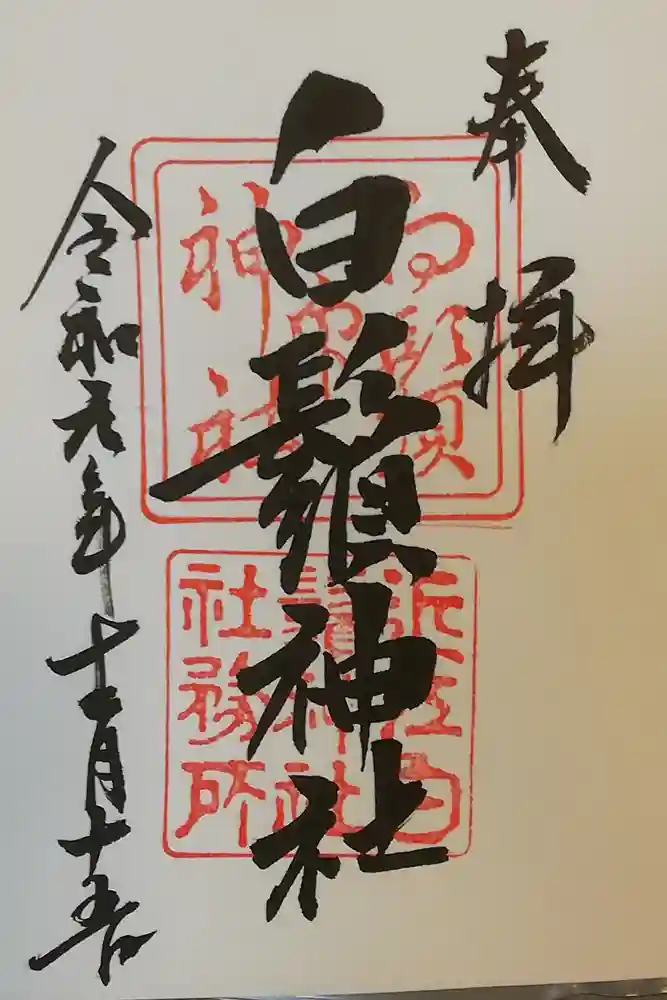 奉拝
白鬚神社
令和元年十一月十五日
近江白
鬚神社
社務所
神社